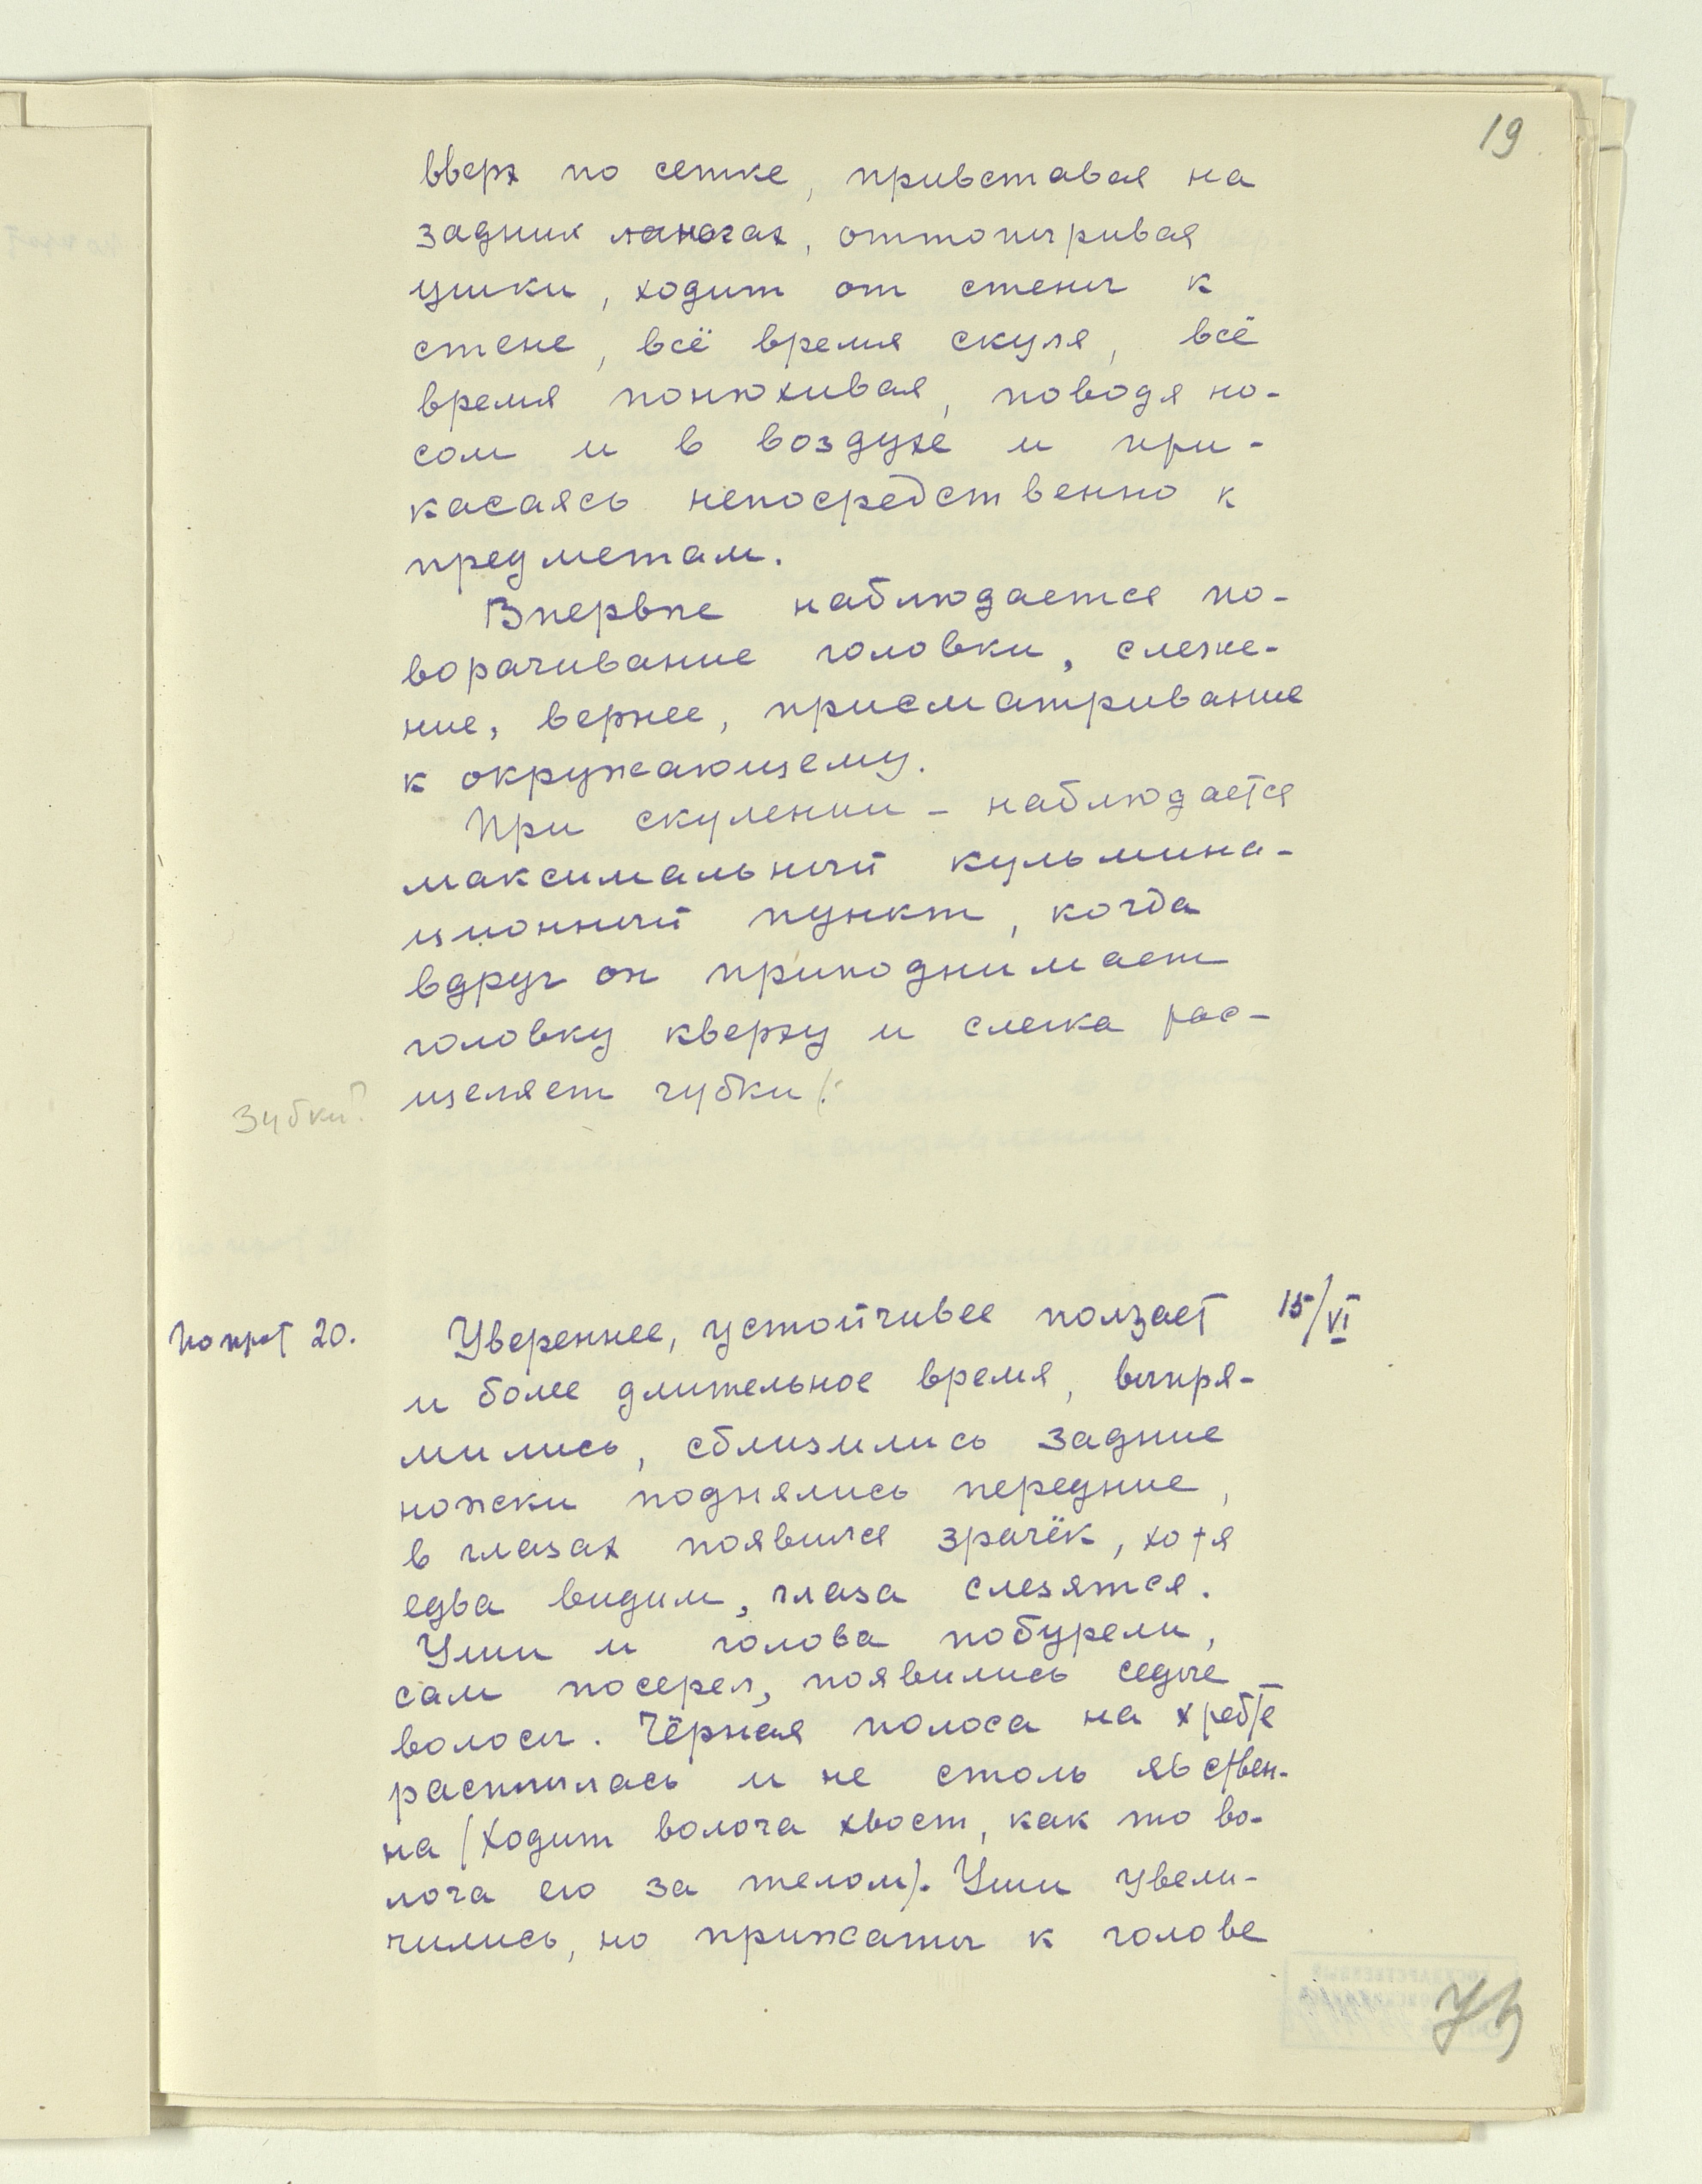 19
вверх по сетке, привставая на
задних ланогах, оттопыривая
ушки, ходит от стены к
стене, всё время скуля, всё
время понюхивая, поводя но-
сом и в воздухе и при-
касаясь непосредственно к
предметам.
Впервые наблюдается по-
ворачивание головки, слеже-
ние, вернее, присматривание
к окружающему.
При скулении - наблюдается
максимальный кульмина-
ционный пункт, когда
вдруг он приподнимает
головку кверху и слегка рас-
щеляет губки!
Зубки?
15/VI
20. Увереннее, устойчивее ползает
и более длительное время, выпря-
мились, сблизились задние
ножки поднялись передние,
в глазах появился зрачёк, хотя
едва видим, глаза слезятся.
Уши и голова побурели,
сам посерел, появились седые
волосы. Чёрная полоса на хребте
расплылась и не столь явствен-
на (Ходит волоча хвост, как то во-
лоча его за телом). Уши увели-
чились, но прижаты к голове